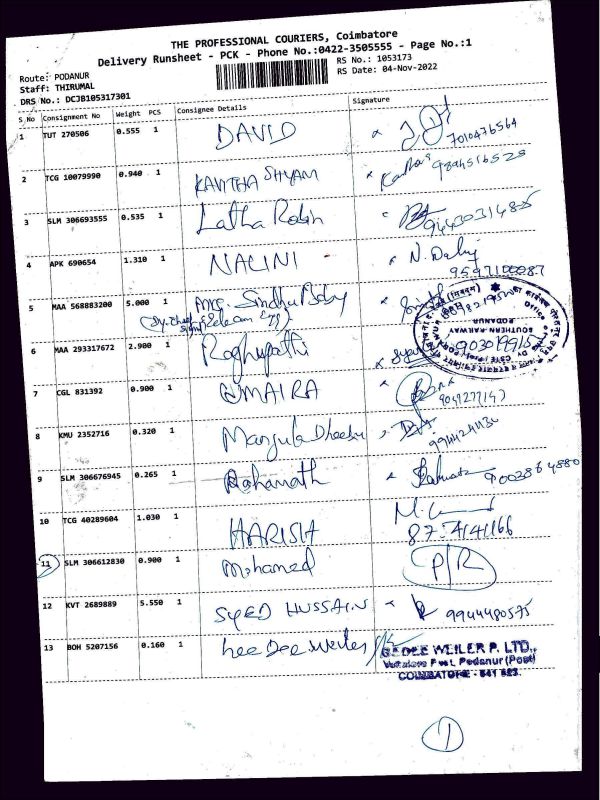 THE PROFESSIONAL COURIERS, Coimbatore
Delivery Runsheet - PCK - Phone No.:0422-3505555 - Page No.:1
Route: PODANUR
RS No.: 1053173
Staff: THIRUMAL
RS Date: 04-Nov-2022
DRS No.: DCJB105317301
S No Consignment No Weight PCS Consignee Details Signature
1 TUT 270506 0.555 1 DAVID
7010476564
2 TCG 10079990 0.940 1 KAVITHA SHYAM
3 SLM 306693555 0.535 1 Latha Robin
94430314835
4 APK 690654 1.310 1 NALINI N.
5 MAA 568883200 5.000 1 Sindhu
SOUTHERN RAILWAY
PODANUR
6 MAA 293317672 2.900 1 Raghupathi
903019915
7 CGL 831392 0.900 1 UMAIRA
8 KMU 2352716 0.320 1 Manjula
9 SLM 306676945 0.265 1 Rahamath
9002864880
10 TCG 40289604 1.030 1 HARISH M.
11 SLM 306612830 0.900 1 Mohamed P/R
12 KVT 2689889 5.550 1 SYED HUSSAIN 9944480575
13 BOH 5207156 0.160 1 GEDEE WEILER P. LTD.,
Podanur (Post)
COIMBATORE - 641 023.
1